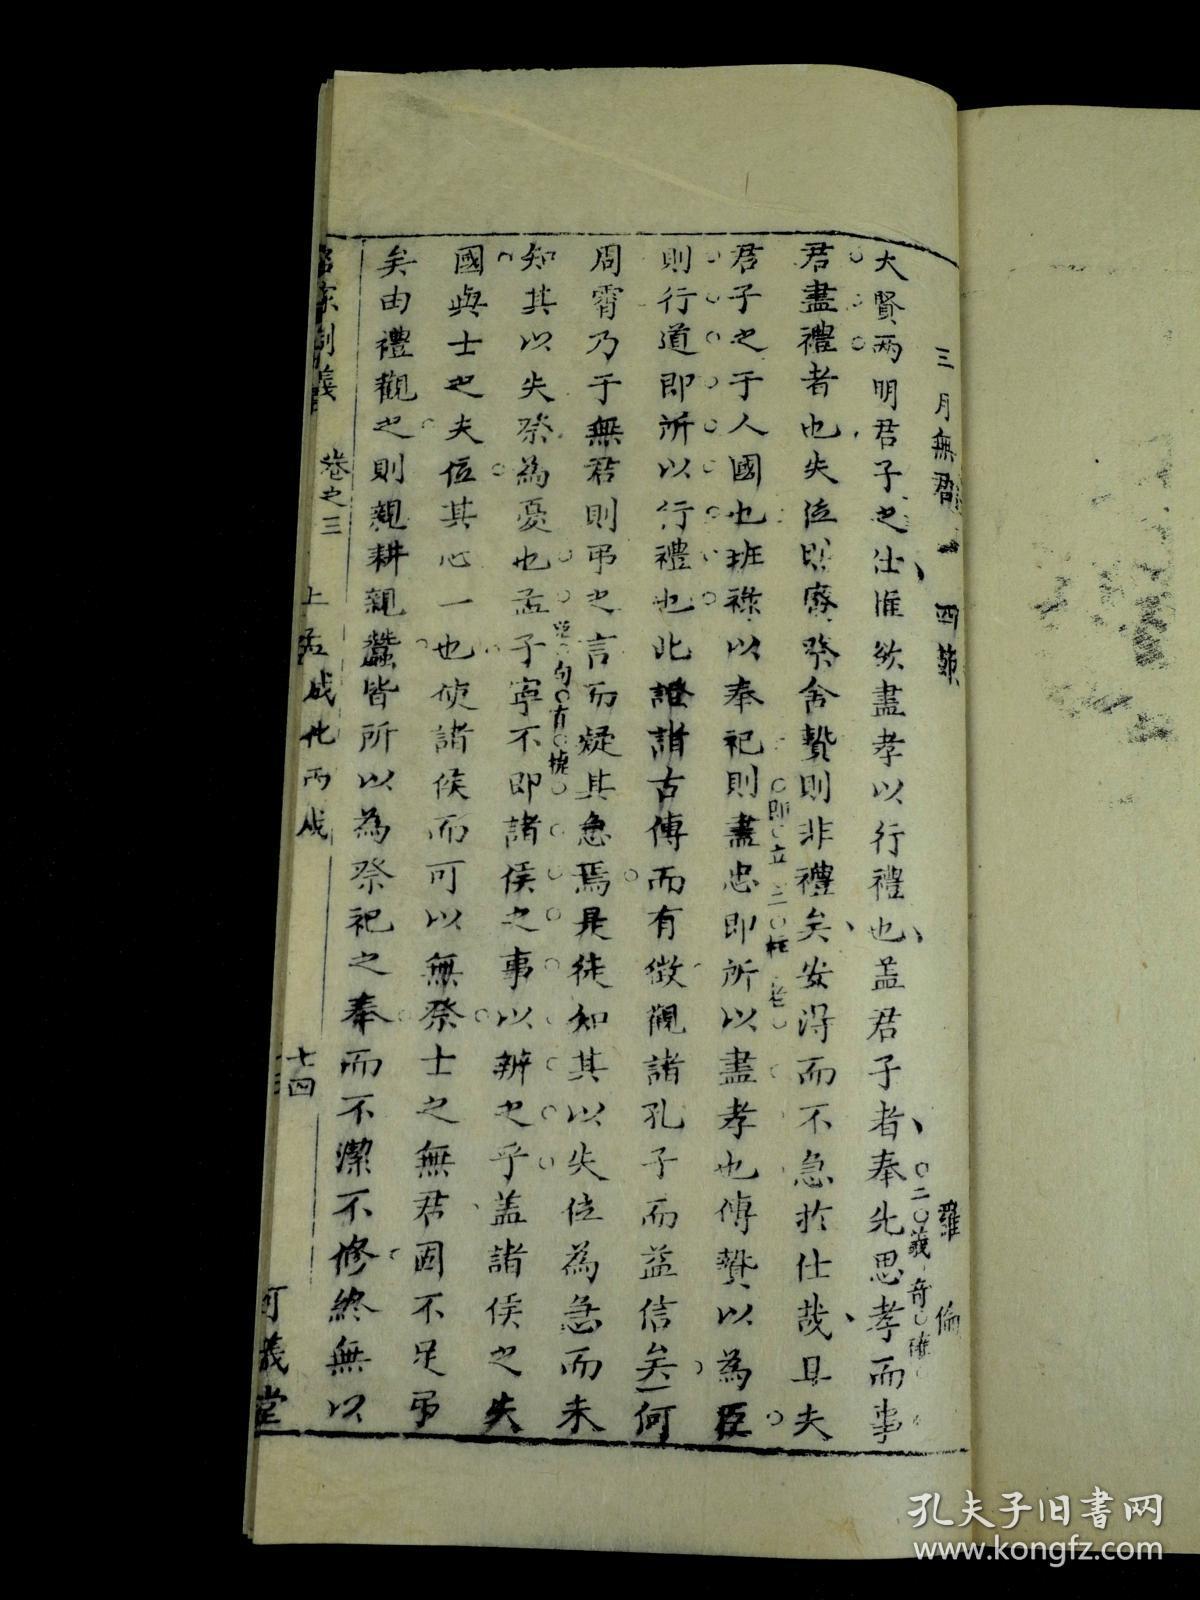 三月無君 四節 羅倫
大賢兩明君子之仕惟欲盡孝以行禮也盖君子者奉先思孝而事
二義奇確
君盡禮者也失位則廢祭舍贄則非禮矣安得而不急於仕哉且夫
即立三柱
君子之于人國也班祿以奉祀則盡忠即所以盡孝也傅贄以為臣
則行道即所以行禮也此證諸古傳而有徵觀諸孔子而益信矣何
周霄乃于無君則弔之言而疑其急焉是徒知其以失位為急而未
句有
知其以失祭為憂也孟子寧不即諸侯之事以辨之乎盖諸侯之失
國與士之失位其心一也使諸侯而可以無祭士之無君固不足弔
矣由禮觀之則親耕親蠶皆所以為祭祀之奉而不潔不修終無以
名家制義 卷之三 上孟成化丙戌 七四 可儀堂
孔夫子旧书网
www.kongfz.com